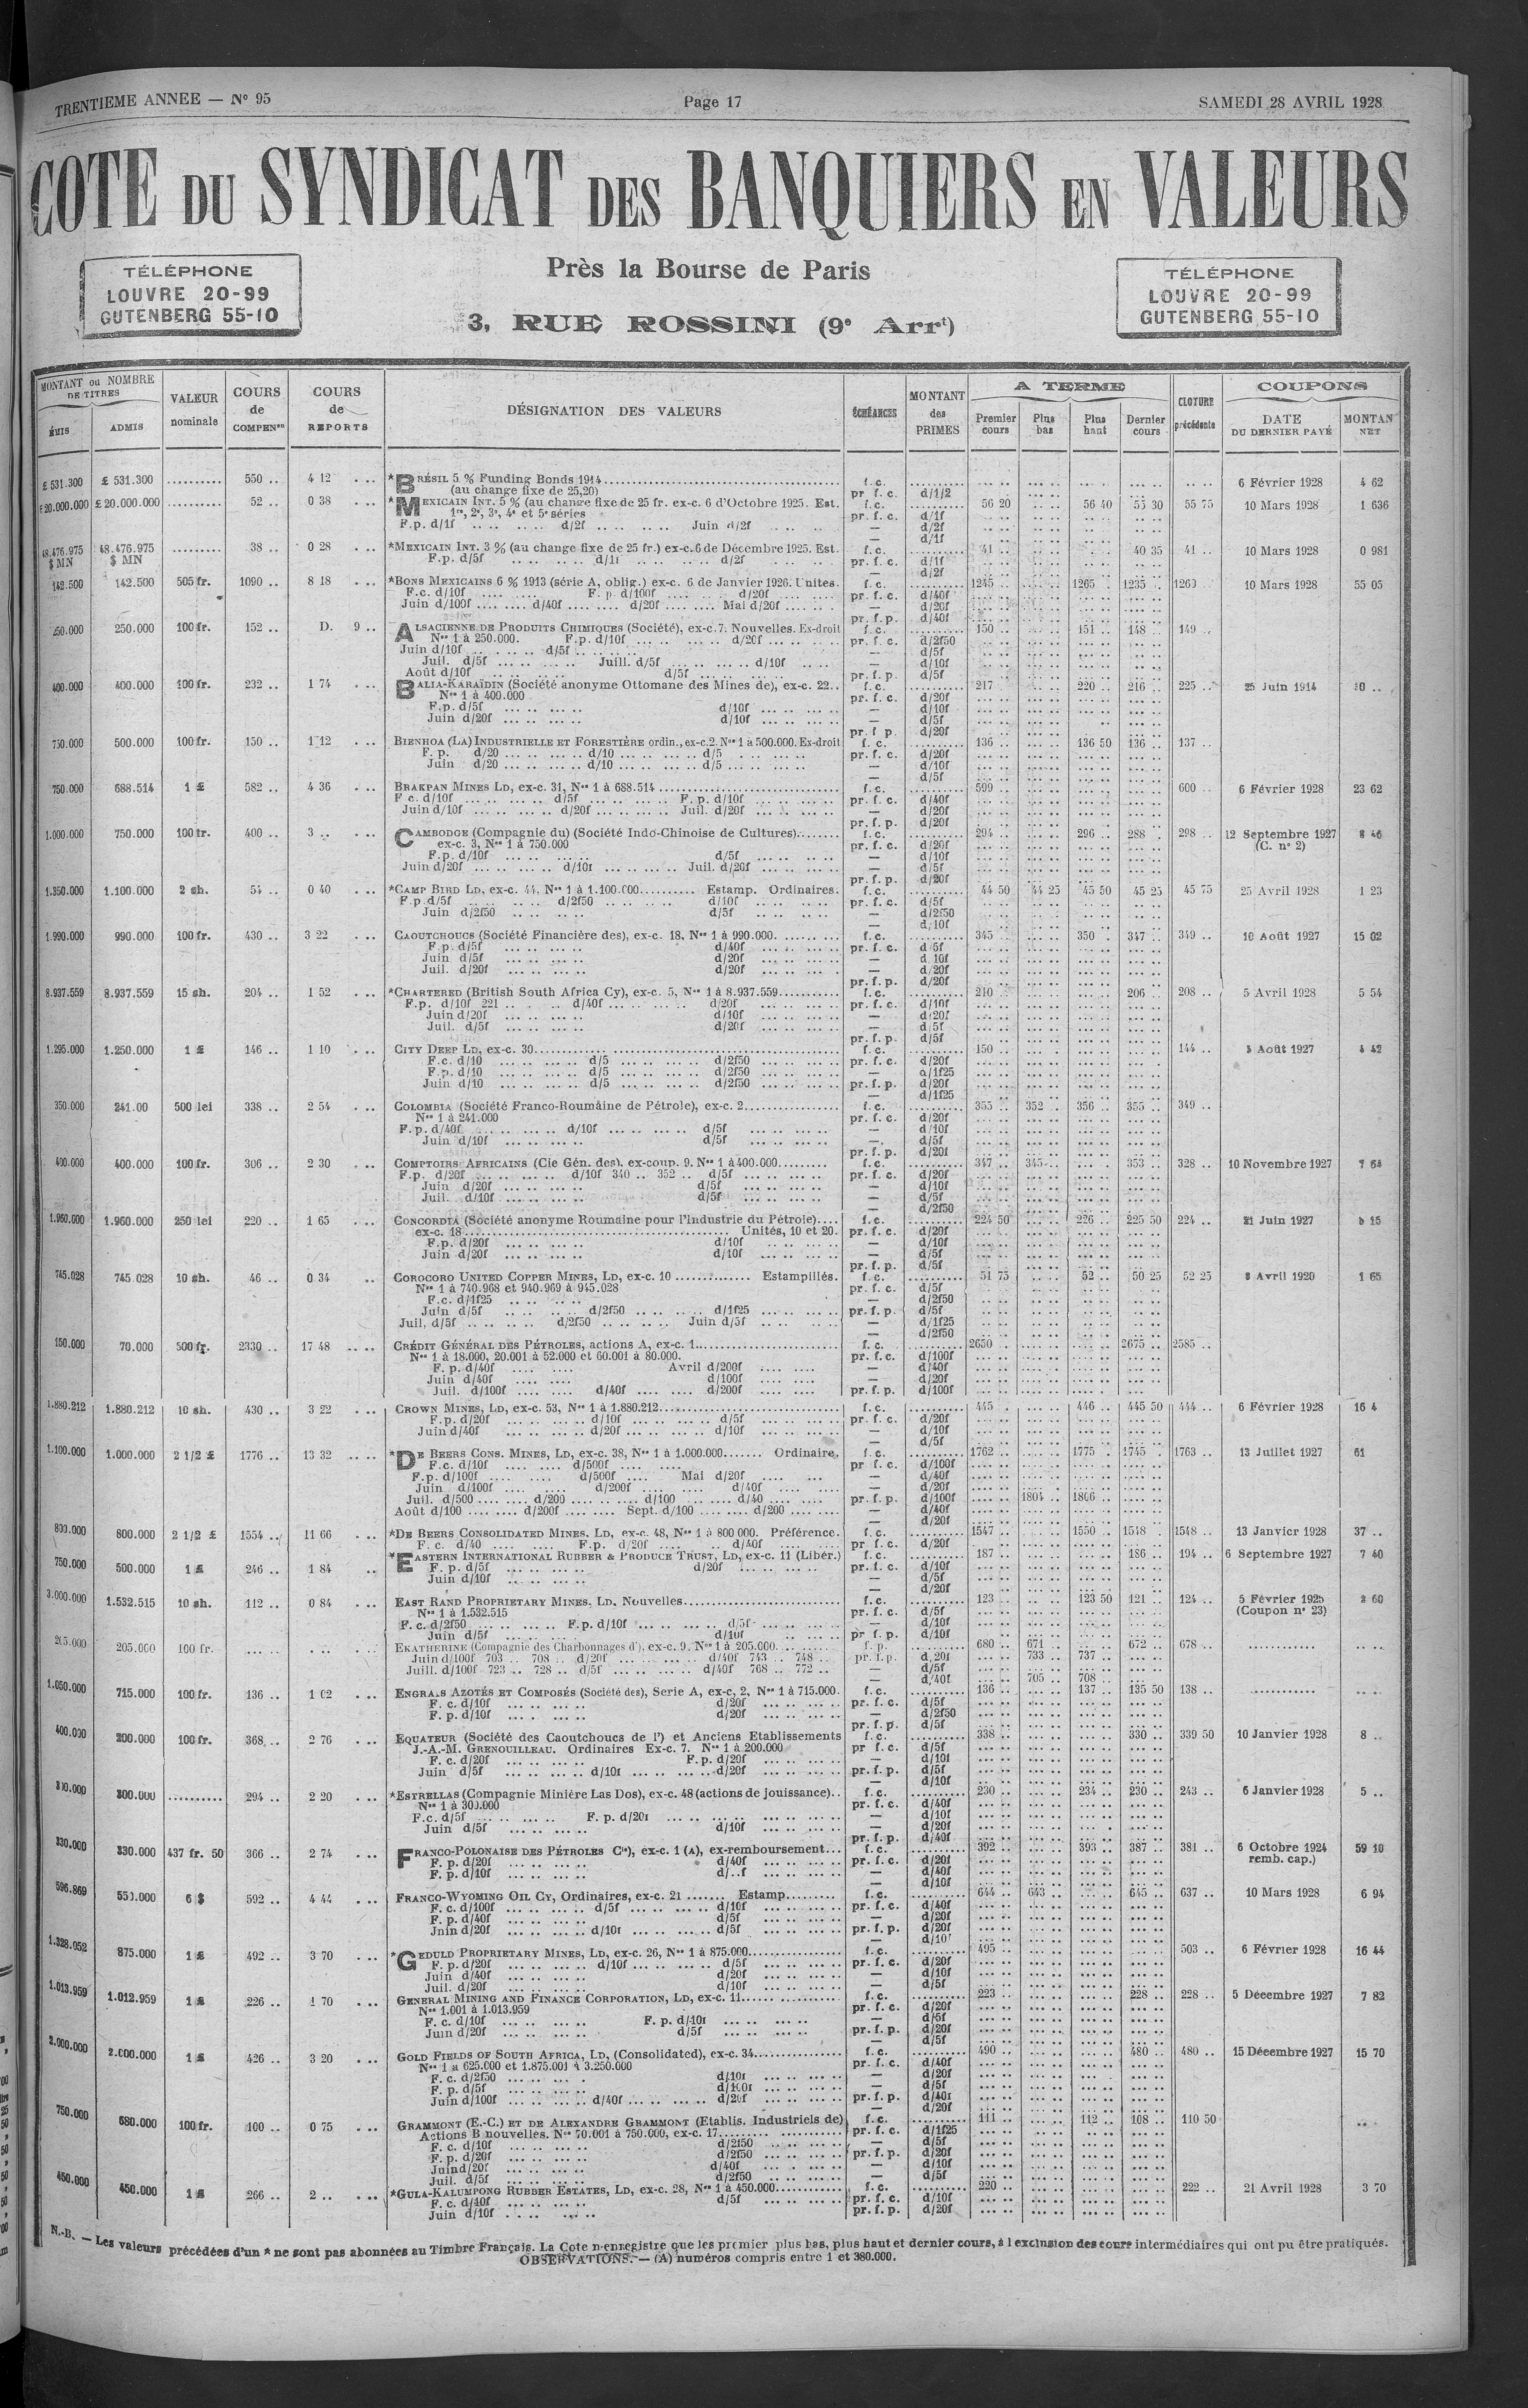 TRENTIEME ANNEE — N° 95
Page 17
SAMEDI 28 AVRIL 1928
COTE DU SYNDICAT DES BANQUIERS EN VALEURS
TÉLÉPHONE
LOUVRE 20-99
GUTENBERG 55-10
Près la Bourse de Paris
3, RUE ROSSINI (9e Arrt)
TÉLÉPHONE
LOUVRE 20-99
GUTENBERG 55-10
MONTANT ou NOMBRE DE TITRES
ÉMIS ADMIS
VALEUR nominale
COURS de COMPENon
COURS de REPORTS
DÉSIGNATION DES VALEURS
ÉCHÉANCES
MONTANT des PRIMES
A TERME
Premier cours Plus bas Plus haut Dernier cours
CLOTURE précédente
COUPONS
DATE DU DERNIER PAYÉ MONTAN NET
£ 531.300 £ 531.300 .......... 550 .. 4 12 *BRÉSIL 5 % Funding Bonds 1914 f.c. 6 Février 1928 4 62
(au change fixe de 25,20) pr. f. c. d/1/2
£20.000.000 £ 20.000.000 .......... 52 .. 0 38 *MEXICAIN INT. 5 % (au change fixe de 25 fr. ex-c. 6 d'Octobre 1925. Est. f.c. 56 20 56 40 55 30 55 75 10 Mars 1928 1 636
1re, 2e, 3e, 4e et 5e séries pr. f. c. d/1f
F.p. d/1f d/2f Juin d/2f — d/2f
48.476.975 $ MN 48.476.975 $ MN .......... 38 .. 0 28 *MEXICAIN INT. 3 % (au change fixe de 25 fr.) ex-c. 6 de Décembre 1925. Est. f.c. 41 .. 40 35 41 .. 10 Mars 1928 0 981
F.p. d/5f d/1f d/2f pr. f. c. d/1f
142.500 142.500 505 fr. 1090 .. 8 18 *BONS MEXICAINS 6 % 1913 (série A, oblig.) ex-c. 6 de Janvier 1926. Unites. f.c. 1245 .. 1265 .. 1235 .. 1260 .. 10 Mars 1928 55 05
F.c. d/10f F. p. d/100f d/20f pr. f. c. d/40f
Juin d/100f d/40f d/20f Mai d/20f — d/20f
250.000 250.000 100 fr. 152 .. D. 9 .. ALSACIENNE DE PRODUITS CHIMIQUES (Société), ex-c. 7. Nouvelles. Ex-droit f.c. 150 .. 151 .. 148 .. 149 ..
Nos 1 à 250.000. F.p. d/10f d/20f pr. f. c. d/2f50
Juin d/10f d/5f — d/5f
Juil. d/5f Juill. d/5f d/10f — d/10f
Août d/10f d/5f pr. f. p. d/5f
400.000 400.000 100 fr. 232 .. 1 74 BALIA-KARAÏDIN (Société anonyme Ottomane des Mines de), ex-c. 22.. f.c. 217 .. 220 .. 216 .. 225 .. 25 Juin 1914 10 ..
Nos 1 à 400.000 pr. f. c. d/20f
F.p. d/5f d/10f — d/10f
Juin d/20f d/10f — d/5f
750.000 500.000 100 fr. 150 .. 1 12 BIENHOA (LA) INDUSTRIELLE ET FORESTIÈRE ordin., ex-c. 2. Nos 1 à 500.000. Ex-droit f. c. 136 .. 136 50 136 .. 137 ..
F. p. d/20 d/10 d/5 pr. f. c. d/20f
Juin d/20 d/10 d/5 — d/10f
750.000 688.514 1 £ 582 .. 4 36 BRAKPAN MINES LD, ex-c. 31, Nos 1 à 688.514 f.c. 599 600 .. 6 Février 1928 23 62
F c. d/10f d/5f F. p. d/10f pr. f. c. d/40f
Juin d/10f d/20f Juil. d/20f — d/20f
1.000.000 750.000 100 fr. 400 .. 3 .. CAMBODGE (Compagnie du) (Société Indo-Chinoise de Cultures) f.c. 294 .. 296 .. 288 .. 298 .. 12 Septembre 1927 8 46
ex-c. 3, Nos 1 à 750.000 pr. f. c. d/20f (C. n° 2)
F.p. d/10f d/5f — d/10f
Juin d/20f d/10f Juil. d/20f — d/5f
1.350.000 1.100.000 2 sh. 54 .. 0 40 *CAMP BIRD LD, ex-c. 44. Nos 1 à 1.100.000 Estamp. Ordinaires. f.c. 44 50 44 25 45 50 45 25 45 75 25 Avril 1928 1 23
F.p. d/5f d/2f50 d/10f pr. f. c. d/5f
Juin d/2f50 d/5f — d/2f50
1.990.000 990.000 100 fr. 430 .. 3 22 CAOUTCHOUCS (Société Financière des), ex-c. 18, Nos 1 à 990.000 f.c. 345 350 347 349 .. 10 Août 1927 15 02
F.p. d/5f d/40f pr. f. c. d/5f
Juin d/5f d/20f — d/10f
Juil. d/20f d/20f — d/20f
8.937.559 8.937.559 15 sh. 204 .. 1 52 *CHARTERED (British South Africa Cy), ex-c. 5, Nos 1 à 8.937.559 f.c. 210 206 .. 208 .. 5 Avril 1928 5 54
F.p. d/10f 221 d/40f d/20f pr. f. c. d/10f
Juin d/20f d/10f — d/20f
Juil. d/5f d/20f — d/5f
1.295.000 1.250.000 1 £ 146 .. 1 10 CITY DEEP LD, ex-c. 30 f.c. 150 .. 144 .. Août 1927 4 42
F.c. d/10 d/5 d/2f50 pr. f. c. d/20f
F.p. d/10 d/5 d/2f50 — d/1f25
Juin d/10 d/5 d/2f50 pr. f. p. d/20f
350.000 241.00 500 lei 338 .. 2 54 COLOMBIA (Société Franco-Roumaine de Pétrole), ex-c. 2 f.c. 355 .. 352 .. 356 .. 355 .. 349 ..
Nos 1 à 241.000 pr. f. c. d/20f
F.p. d/40f d/10f d/5f — d/10f
Juin d/10f d/5f — d/5f
400.000 400.000 100 fr. 306 .. 2 30 COMPTOIRS AFRICAINS (Cie Gén. des). ex-coup. 9. Nos 1 à 400.000 f.c. 347 .. 345 353 .. 328 .. 10 Novembre 1927 7 64
F.p. d/20f d/10f 340 .. 352 .. d/5f pr. f. c. d/20f
Juin d/20f d/5f — d/10f
Juil. d/10f d/5f — d/5f
1.960.000 1.960.000 250 lei 220 .. 1 65 CONCORDIA (Société anonyme Roumaine pour l'Industrie du Pétrole) f.c. 224 50 226 .. 225 50 224 .. 21 Juin 1927 15
ex-c. 18 Unités, 10 et 20. pr. f. c. d/20f
F.p. d/20f d/10f — d/10f
Juin d/20f d/10f — d/5f
745.028 745.028 10 sh. 46 .. 0 34 COROCORO UNITED COPPER MINES, LD, ex-c. 10 Estampillés. f.c. 51 75 52 .. 50 25 52 25 8 Avril 1920 1 65
Nos 1 à 740.968 et 940.969 à 945.028 pr. f. c. d/5f
F.c. d/1f25 — d/2f50
Juin d/5f d/2f50 d/1f25 pr. f. p. d/5f
Juil. d/5f d/2f50 Juin d/5f — d/1f25
150.000 70.000 500 fr. 2330 .. 17 48 CRÉDIT GÉNÉRAL DES PÉTROLES, actions A, ex-c. 1 f. c. 2650 2675 .. 2585 ..
Nos 1 à 18.000, 20.001 à 52.000 et 60.001 à 80.000. pr. f. c. d/100f
F. p. d/40f Avril d/200f — d/40f
Juin d/40f d/100f — d/20f
Juil. d/100f d/40f d/200f pr. f. p. d/100f
1.880.212 1.880.212 10 sh. 430 .. 3 22 CROWN MINES, LD, ex-c. 53, Nos 1 à 1.880.212 f.c. 445 446 .. 445 50 444 .. 6 Février 1928 16 4
F.p. d/20f d/10f d/5f pr. f. c. d/20f
Juin d/40f d/20f d/10f — d/10f
1.100.000 1.000.000 2 1/2 £ 1776 .. 13 32 *DE BEERS CONS. MINES, LD, ex-c. 38, Nos 1 à 1.000.000 Ordinaire. f. c. 1762 .. 1775 .. 1745 .. 1763 .. 13 Juillet 1927 61
F.c. d/10f d/500f pr f. c. d/100f
F.p. d/100f d/500f Mai d/20f — d/40f
Juin d/100f d/200f d/40f — d/20f
Juil. d/500 d/200 d/100 d/40 pr. f. p. d/100f 1804 .. 1806 ..
Août d/100 d/200f Sept. d/100 d/200 — d/40f
800.000 800.000 2 1/2 £ 1554 .. 11 66 *DE BEERS CONSOLIDATED MINES. LD, ex-c. 48, Nos 1 à 800 000. Préférence. f. c. 1547 1550 .. 1548 .. 1548 .. 13 Janvier 1928 37 ..
F. c. d/40 F.p. d/20f d/40f pr f. c. d/20f
750.000 500.000 1 £ 246 .. 1 84 *EASTERN INTERNATIONAL RUBBER & PRODUCE TRUST, LD, ex-c. 11 (Libér.) f.c. 187 .. 186 .. 194 .. 6 Septembre 1927 7 40
F. p. d/5f d/20f pr. f. c. d/10f
Juin d/10f — d/5f
3.000.000 1.532.515 10 sh. 112 .. 0 84 EAST RAND PROPRIETARY MINES. LD. Nouvelles f.c. 123 123 50 121 .. 124 .. 5 Février 1925 2 60
Nos 1 à 1.532.515 pr. f. c. d/5f (Coupon n° 23)
F. c. d/2f50 F.p. d/10f d/5f — d/10f
Juin d/5f d/10f pr f. p. d/10f
205.000 205.000 100 fr. EKATHERINE (Compagnie des Charbonnages d'). ex-c. 9. Nos 1 à 205.000 f. p. 680 .. 671 .. 672 .. 678 ..
Juin d/100f 703 .. 708 .. d/20f d/40f 743 .. 748 .. pr. f.p. d/20f 733 .. 737 ..
Juill. d/100f 723 .. 728 .. d/5f d/40f 768 .. 772 .. — d/5f
— d/40f 705 .. 708 ..
1.050.000 715.000 100 fr. 136 .. 1 02 ENGRAIS AZOTÉS ET COMPOSÉS (Société des), Serie A, ex-c, 2, Nos 1 à 715.000. f.c. 136 .. 137 .. 135 50 138 ..
F. c. d/10f d/20f pr. f. c. d/5f
F. p. d/10f d/20f — d/2f50
400.000 200.000 100 fr. 368 .. 2 76 EQUATEUR (Société des Caoutchoucs de l') et Anciens Etablissements f.c. 338 .. 330 .. 339 50 10 Janvier 1928 8 ..
J.-A.-M. GRENOUILLEAU. Ordinaires Ex-c. 7. Nos 1 à 200.000 pr f. c. d/5f
F. c. d/20f F.p. d/20f — d/10f
Juin d/5f d/10f d/20f pr. f. p. d/5f
300.000 300.000 .......... 294 .. 2 20 *ESTRELLAS (Compagnie Minière Las Dos), ex-c. 48 (actions de jouissance).. f.c. 230 .. 234 .. 230 .. 243 .. 6 Janvier 1928 5 ..
Nos 1 à 300.000 pr. f. c. d/40f
F.c. d/5f F. p. d/20f — d/10f
Juin d/5f d/10f — d/20f
330.000 330.000 437 fr. 50 366 .. 2 74 FRANCO-POLONAISE DES PÉTROLES Cie), ex-c. 1 (A), ex-remboursement... f.c. 392 .. 393 .. 387 .. 381 .. 6 Octobre 1924 59 10
F. p. d/20f d/40f pr. f. c. d/20f remb. cap.)
F. p. d/10f d/..f — d/40f
596.869 550.000 6 $ 592 .. 4 44 FRANCO-WYOMING OIL CY, Ordinaires, ex-c. 21 Estamp. f.c. 644 .. 643 .. 645 .. 637 .. 10 Mars 1928 6 94
F. c. d/100f d/5f d/10f pr. f. c. d/40f
F. p. d/40f d/5f — d/20f
Juin d/20f d/10f d/5f pr. f. p. d/20f
1.328.952 875.000 1 £ 492 .. 3 70 *GEDULD PROPRIETARY MINES, LD, ex-c. 26, Nos 1 à 875.000 f.c. 495 .. 503 .. 6 Février 1928 16 44
F. p. d/20f d/10f d/5f pr. f. c. d/20f
Juin d/40f d/20f — d/10f
Juil. d/20f d/10f — d/5f
1.013.959 1.012.959 1 £ 226 .. 1 70 GENERAL MINING AND FINANCE CORPORATION, LD, ex-c. 11 f.c. 223 .. 228 .. 228 .. 5 Décembre 1927 7 82
Nos 1.001 à 1.013.959 pr. f. c. d/20f
F. c. d/10f F. p. d/10f — d/5f
Juin d/20f d/5f pr. f. p. d/20f
2.000.000 2.000.000 1 £ 426 .. 3 20 GOLD FIELDS OF SOUTH AFRICA, LD, (Consolidated), ex-c. 34 f.c. 490 .. 480 .. 480 .. 15 Décembre 1927 15 70
Nos 1 à 625.000 et 1.875.001 à 3.250.000 pr. f. c. d/40f
F. c. d/2f50 d/10f — d/20f
F. p. d/5f d/100f — d/5f
Juin d/100f d/40f d/20f pr. f. p. d/40f
750.000 680.000 100 fr. 100 .. 0 75 GRAMMONT (E.-C.) ET DE ALEXANDRE GRAMMONT (Etablis. Industriels de) f.c. 111 .. 112 .. 108 .. 110 50
Actions B nouvelles. Nos 70.001 à 750.000, ex-c. 17 pr. f. c. d/1f25
F. c. d/10f d/2f50 — d/5f
F. p. d/20f d/2f50 pr. f. p. d/20f
Juin d/20f d/40f — d/10f
Juil. d/5f d/2f50 — d/5f
450.000 450.000 1 £ 266 .. 2 .. *GULA-KALUMPONG RUBBER ESTATES, LD, ex-c. 28, Nos 1 à 450.000 f.c. 220 222 .. 21 Avril 1928 3 70
F. c. d/10f d/5f pr. f. c. d/10f
Juin d/10f pr. f. p. d/20f
N.-B. — Les valeurs précédées d'un * ne sont pas abonnées au Timbre Français. La Cote n'enregistre que les premier plus bas, plus haut et dernier cours, à l exclusion des cours intermédiaires qui ont pu être pratiqués.
OBSERVATIONS. — (A) numéros compris entre 1 et 380.000.